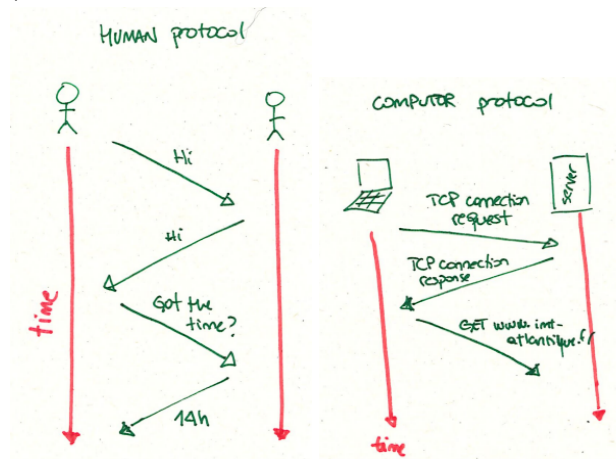 HUMAN protocol
Hi
Hi
Got the
time?
14h
time
COMPUTOR protocol
server
TCP connection
request
TCP connection
response
GET www.imt-
atlantique.fr
time